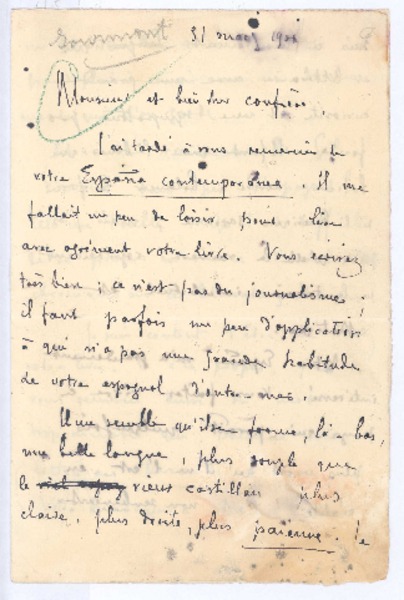 Gourmont 31 mars 1901
Monsieur et bien cher confrère,
J'ai tardé à vous remercier de
votre España contemporánea. Il me
fallait un peu de loisir pour lire
avec agrément votre livre. Vous écrivez
très bien ; ce n'est pas du journalisme ;
il faut parfois un peu d'application
à qui n'a pas une grande habitude
de votre espagnol d'outre-mer.
Il me semble qu'il se forme, là-bas,
une belle langue, plus souple que
le vieux castillan, plus
claire, plus droite, plus païenne. Je